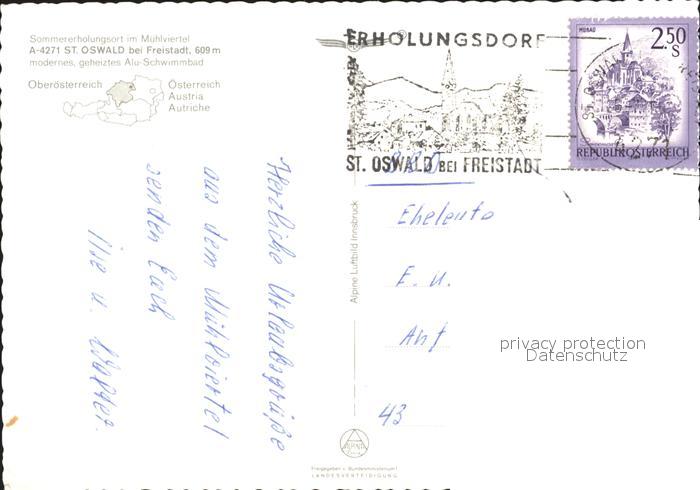 Sommererholungsort im Mühlviertel
A-4271 ST. OSWALD bei Freistadt, 609 m
modernes, geheiztes Alu-Schwimmbad
Oberösterreich
Österreich
Austria
Autriche
ERHOLUNGSDORF
ST. OSWALD BEI FREISTADT
MURAU
2.50
S
REPUBLIK ÖSTERREICH
Herzliche Urlaubsgrüße
aus dem Mühlviertel
senden Euch
Ilse u. Walter.
Alpine Luftbild Innsbruck
Eheleute
E. u.
43
privacy protection
Datenschutz
Freigegeben v. Bundesministerium f.
LANDESVERTEIDIGUNG